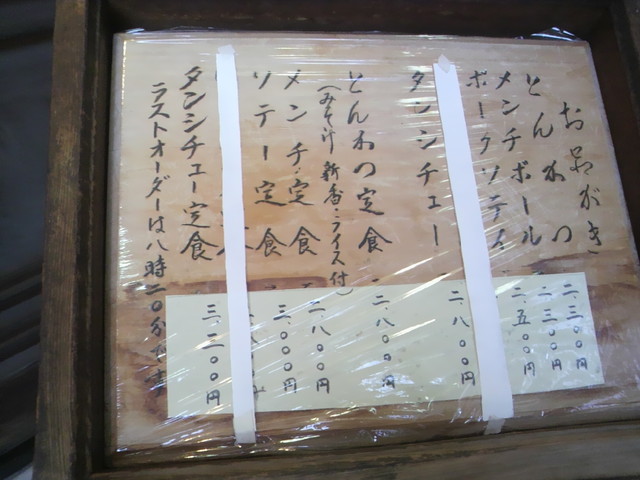 お品がき
とんかつ 二.三〇〇
メンチボール 二.三〇〇円
ポークソテイ 二.五〇〇円
タンシチュー 二.八〇〇円
とんかつ定食 二.八〇〇円
(みそ汁 新香・ライス付)
メンチ定食 二.八〇〇円
ソテー定食 三.〇〇〇円
タンシチュー定食 三.二〇〇円
ラストオーダーは八時二〇分です